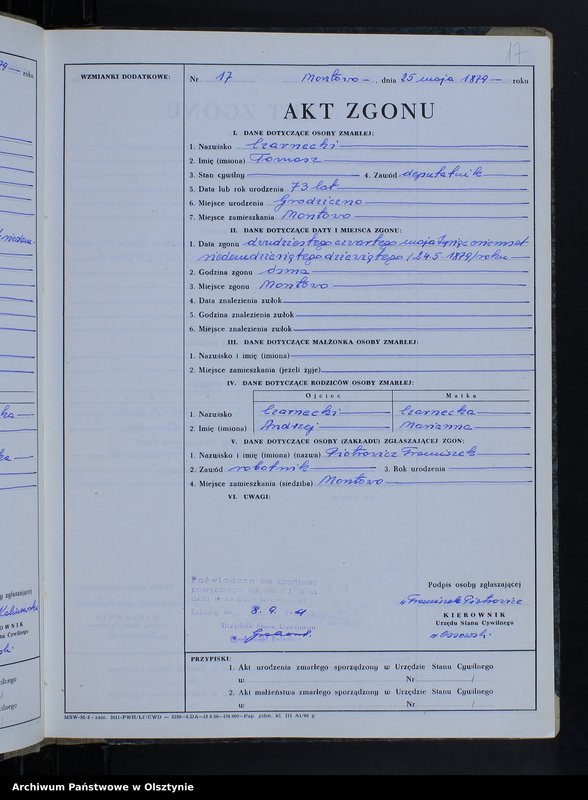 17
WZMIANKI DODATKOWE:
Nr 17 Montowo , dnia 25 maja 1879 roku
AKT ZGONU
I. DANE DOTYCZĄCE OSOBY ZMARŁEJ:
1. Nazwisko Czarnecki
2. Imię (imiona) Tomasz
3. Stan cywilny 4. Zawód deputatnik
5. Data lub rok urodzenia 73 lat
6. Miejsce urodzenia Grodziczno
7. Miejsce zamieszkania Montowo
II. DANE DOTYCZĄCE DATY I MIEJSCA ZGONU:
1. Data zgonu dwudziestego czwartego maja tysiąc osiemset
siedemdziesiątego dziewiątego /24.5.1879/ roku
2. Godzina zgonu ósma
3. Miejsce zgonu Montowo
4. Data znalezienia zwłok
5. Godzina znalezienia zwłok
6. Miejsce znalezienia zwłok
III. DANE DOTYCZĄCE MAŁŻONKA OSOBY ZMARŁEJ:
1. Nazwisko i imię (imiona)
2. Miejsce zamieszkania (jeżeli żyje)
IV. DANE DOTYCZĄCE RODZICÓW OSOBY ZMARŁEJ:
Ojciec Matka
1. Nazwisko Czarnecki Czarnecka
2. Imię (imiona) Andrzej Marianna
V. DANE DOTYCZĄCE OSOBY (ZAKŁADU) ZGŁASZAJĄCEJ ZGON:
1. Nazwisko i imię (imiona) (nazwa) Piotrowicz Franciszek
2. Zawód robotnik 3. Rok urodzenia
4. Miejsce zamieszkania (siedziba) Montowo
VI. UWAGI:
Poświadcza się zgodność
powyższego
8. 9.
Urzędnik Stanu Cywilnego
Podpis osoby zgłaszającej
Franciszek Piotrowicz
KIEROWNIK
Urzędu Stanu Cywilnego
Ossowski
PRZYPISKI:
1. Akt urodzenia zmarłego sporządzony w Urzędzie Stanu Cywilnego
w Nr /
2. Akt małżeństwa zmarłego sporządzony w Urzędzie Stanu Cywilnego
w Nr /
Archiwum Państwowe w Olsztynie